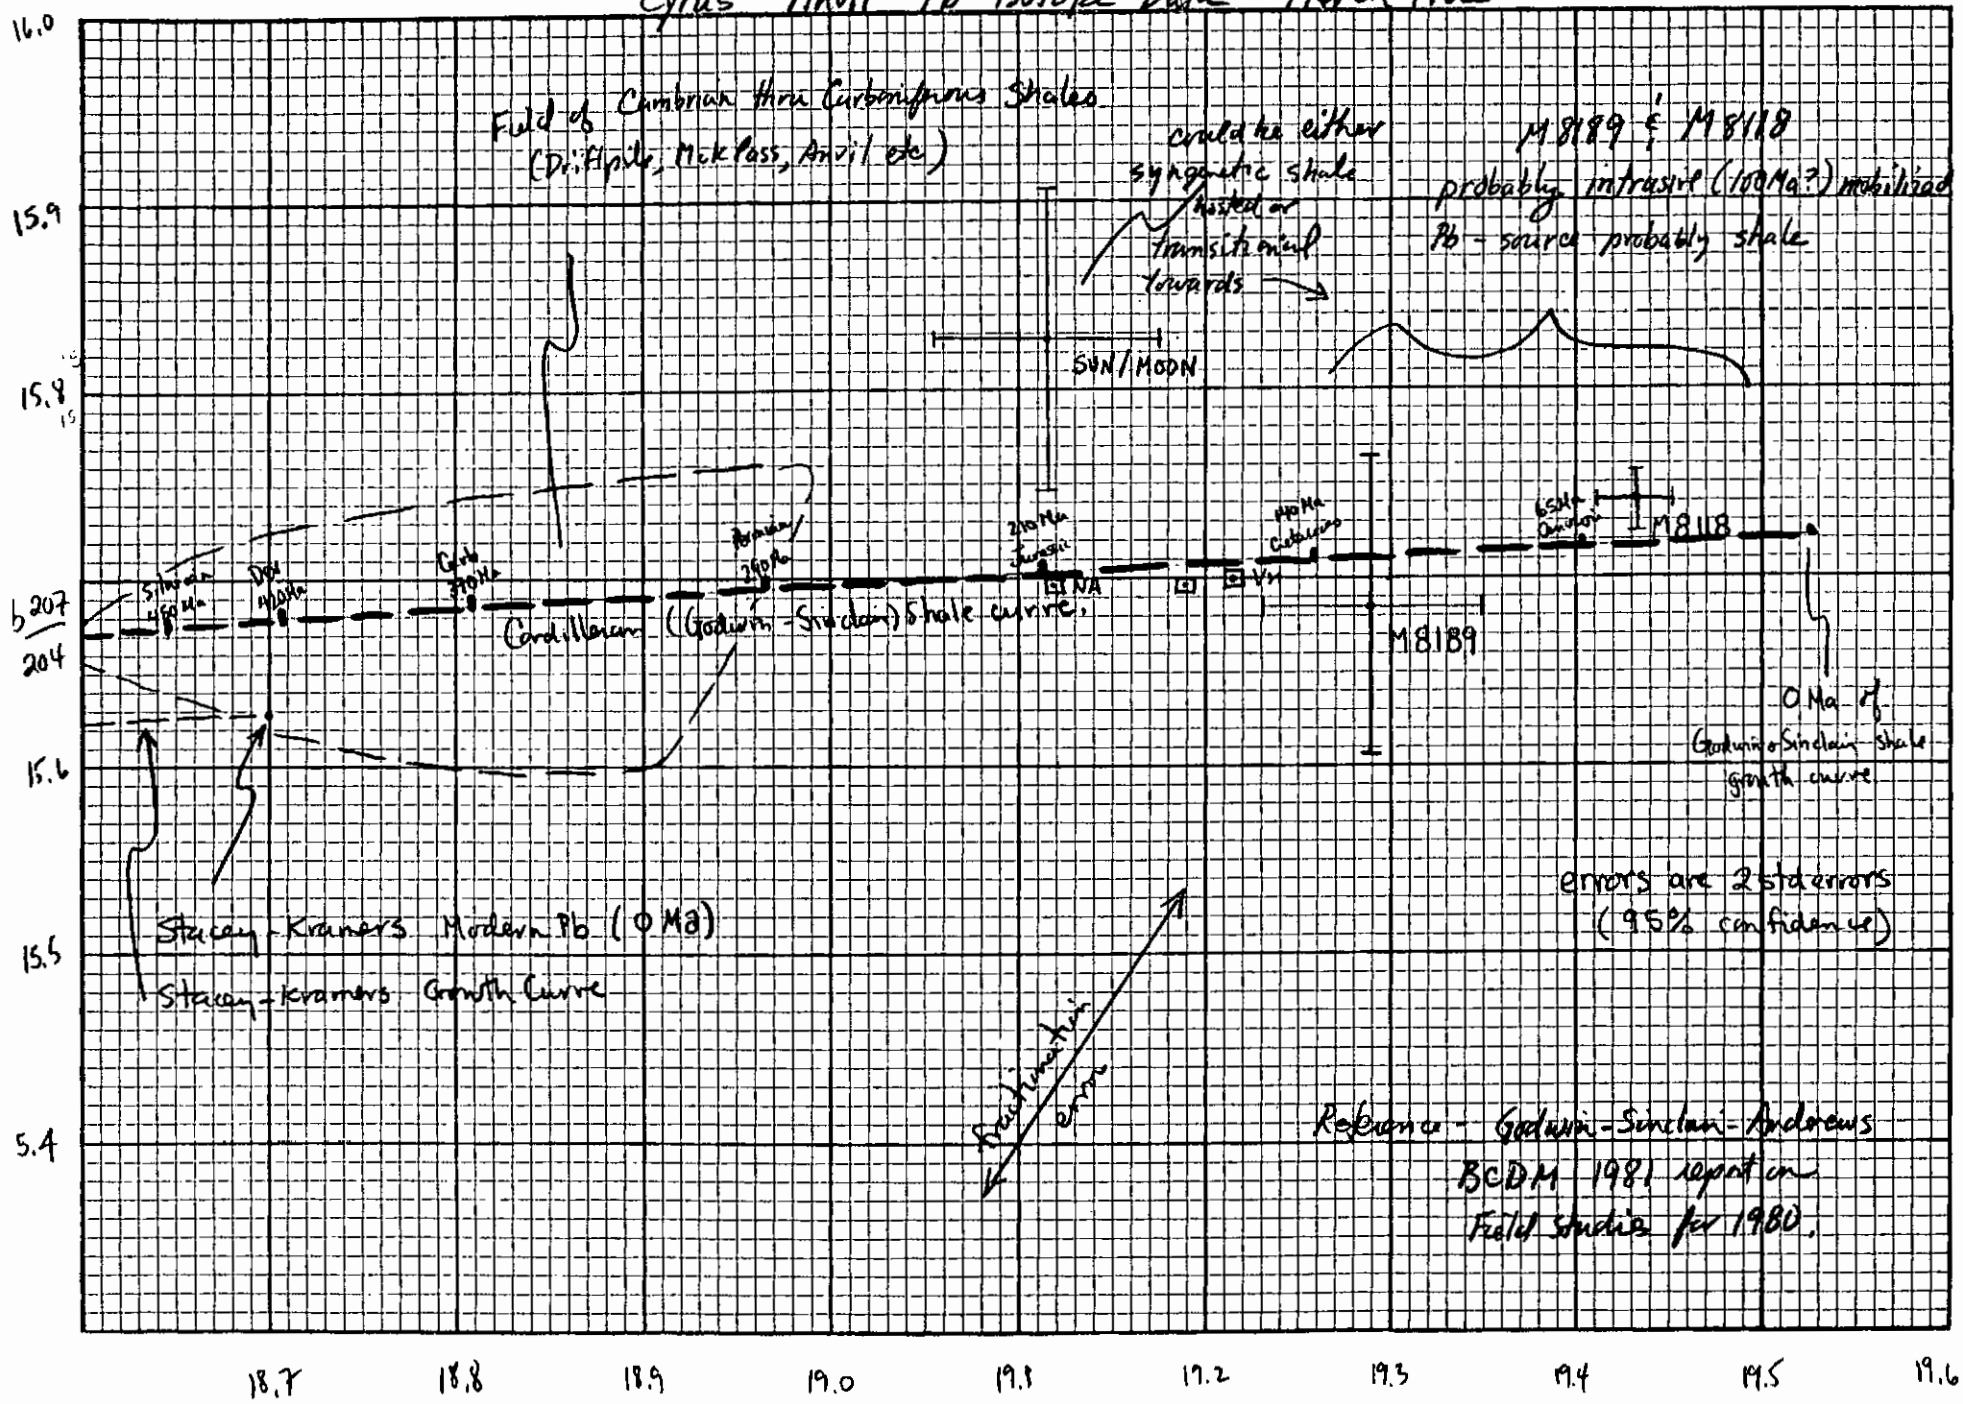 Cyrus Anvil Pb Isotope Data
16.0
15.9
15.8
b 207
204
15.6
15.5
5.4
Field of Cambrian thru Carboniferous Shales
(Driftpile, McK Pass, Anvil etc)
could be either
syngenetic shale
hosted or
transitional
towards
M 8189 & M 8118
probably intrusive (100 Ma?) mobilized
Pb - source probably shale
SUN/MOON
Silurian
450 Ma
Dev
420 Ma
Carb
370 Ma
Permian
290 Ma
210 Ma
Jurassic
140 Ma
Cretaceous
65 Ma
NA
VM
M8118
M8189
Cordilleran (Godwin-Sinclair) Shale curve.
0 Ma of
Godwin & Sinclair shale
growth curve
Stacey-Kramers Modern Pb (0 Ma)
Stacey-Kramers Growth Curve
fractionation
error
errors are 2 std errors
(95% confidence)
Reference - Godwin-Sinclair-Andrews
BCDM 1981 report on
Field Studies for 1980.
18.7 18.8 18.9 19.0 19.1 19.2 19.3 19.4 19.5 19.6